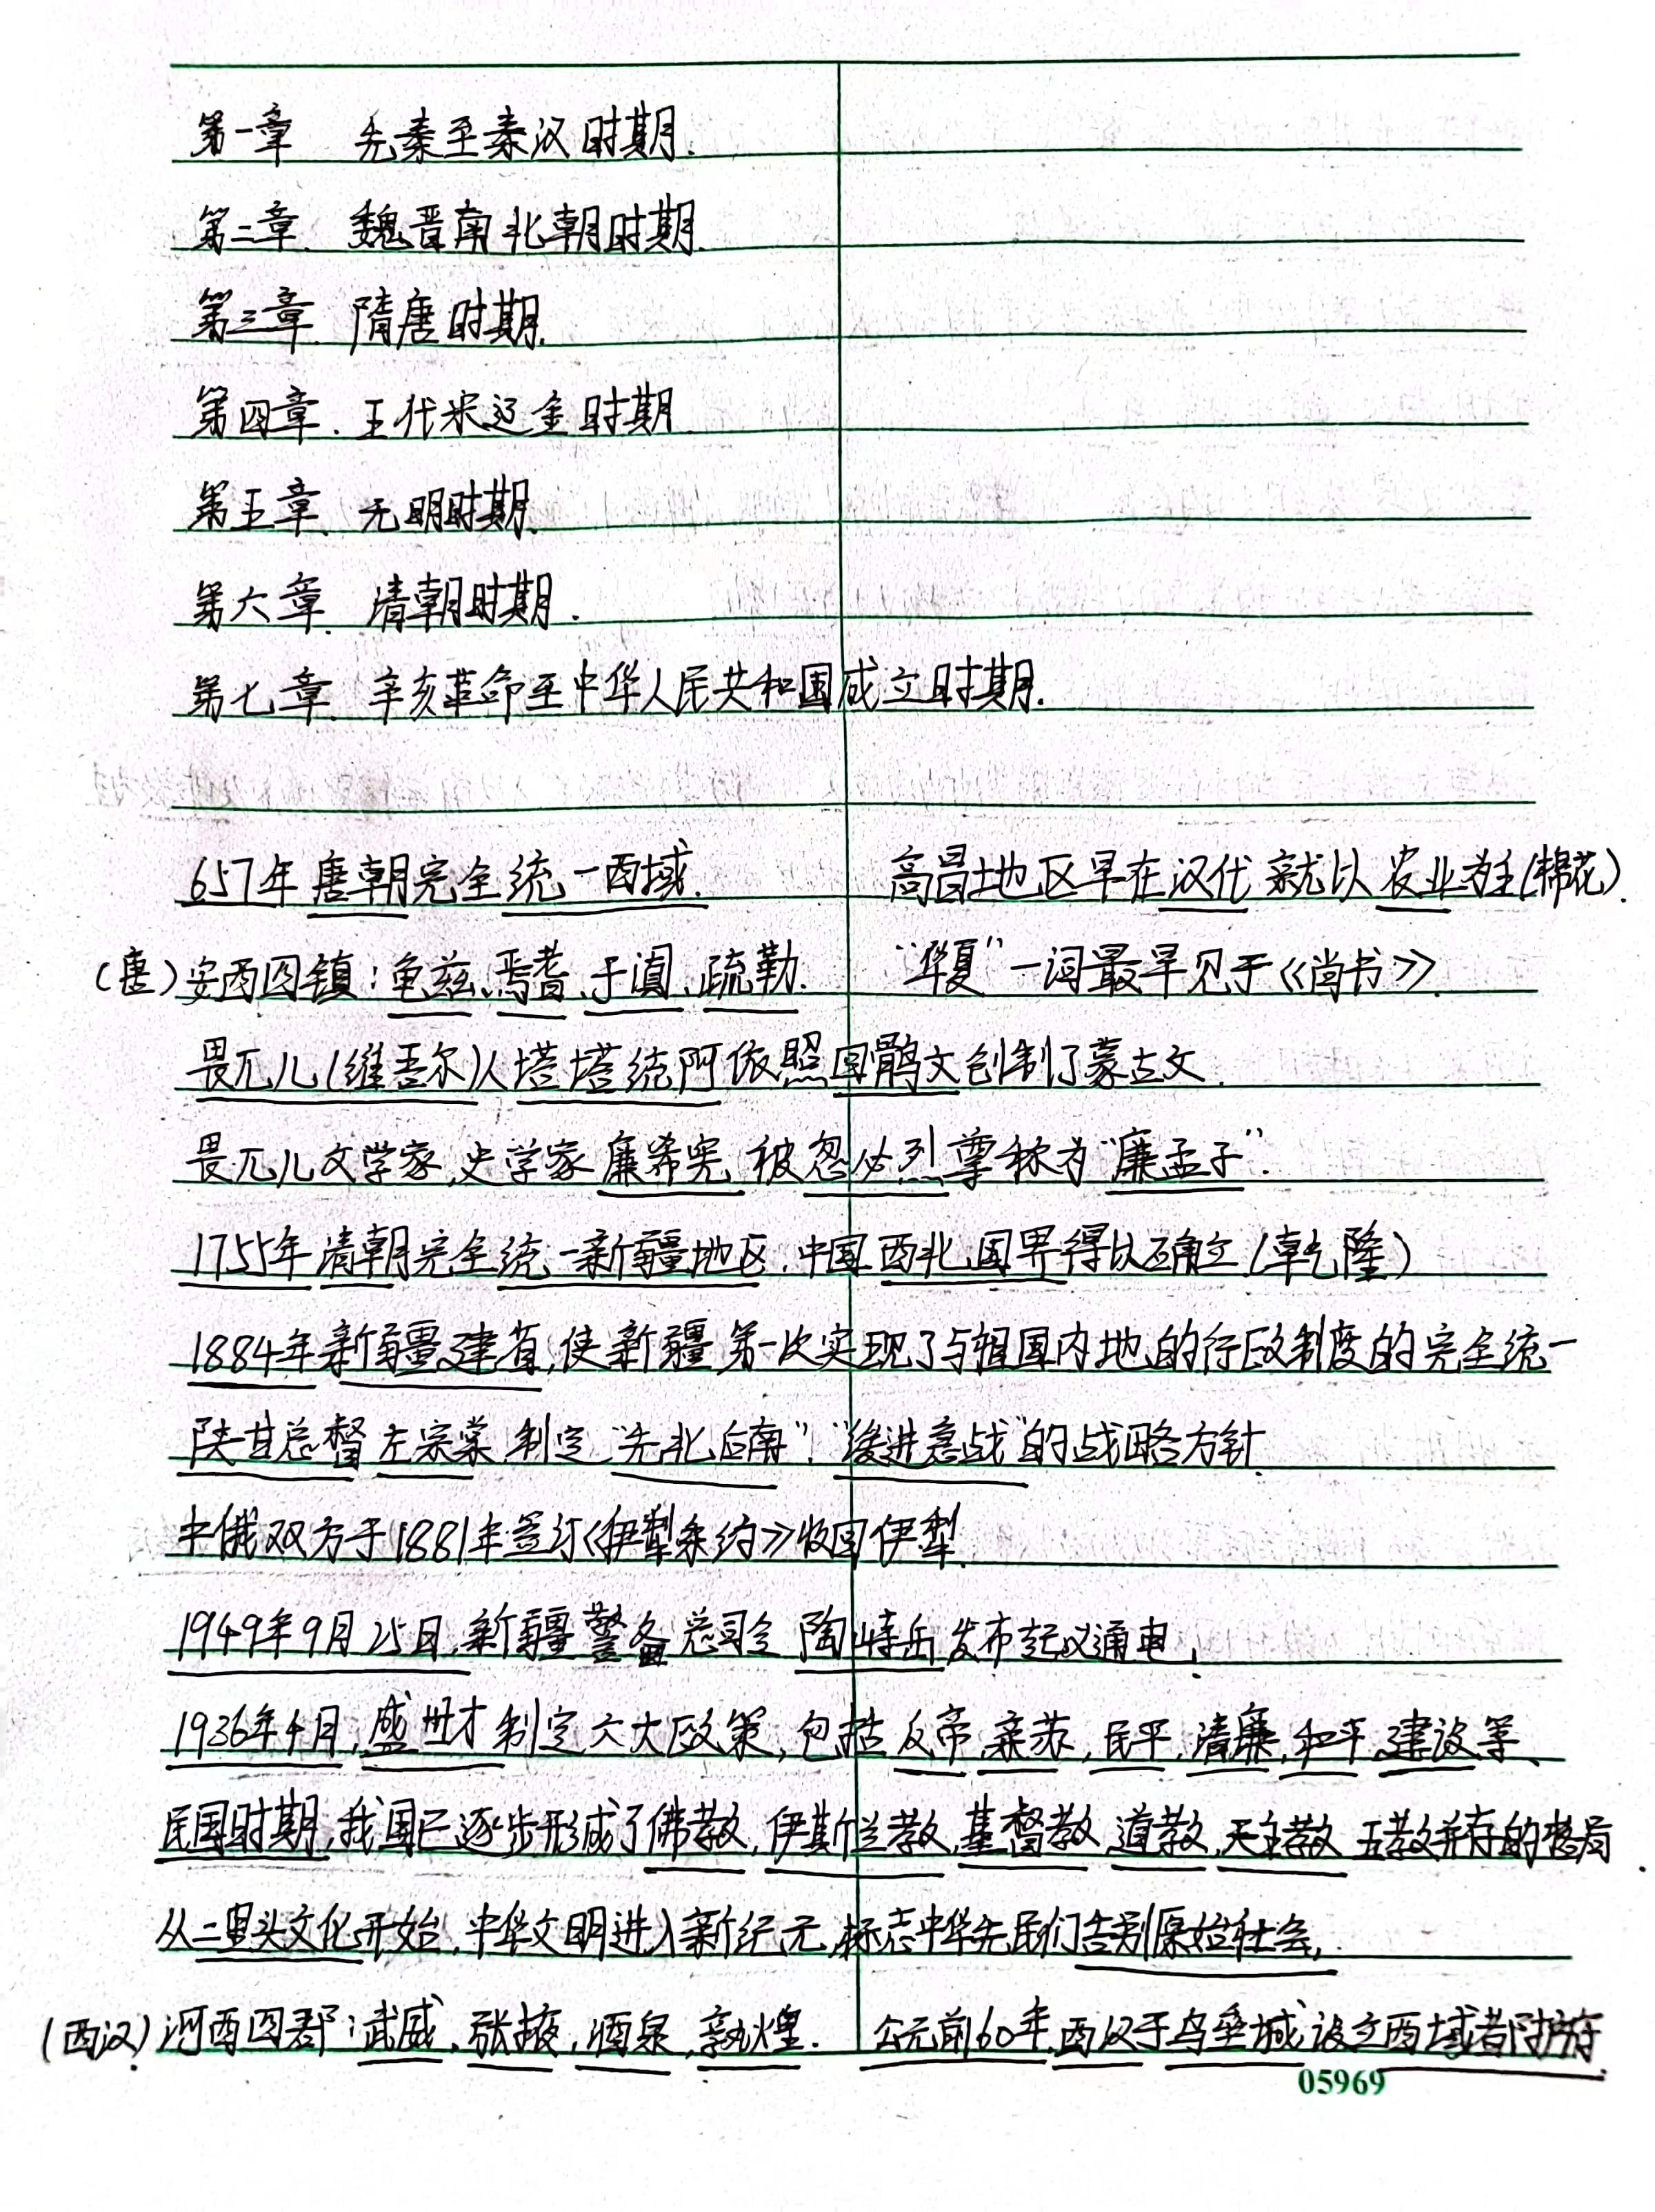 第一章 先秦至秦汉时期.
第二章. 魏晋南北朝时期.
第三章. 隋唐时期.
第四章. 五代宋辽金时期.
第五章. 元明时期.
第六章. 清朝时期.
第七章. 辛亥革命至中华人民共和国成立时期.
657年唐朝完全统一西域. 高昌地区早在汉代就以农业为主(棉花).
(唐)安西四镇:龟兹、焉耆、于阗、疏勒. “华夏”一词最早见于《尚书》.
畏兀儿(维吾尔)人塔塔统阿依照回鹘文创制了蒙古文.
畏兀儿文学家,史学家廉希宪被忽必烈尊称为“廉孟子”.
1755年清朝完全统一新疆地区,中国西北国界得以确立.(乾隆)
1884年新疆建省,使新疆第一次实现了与祖国内地的行政制度的完全统一
陕甘总督左宗棠制定“先北后南”,“缓进急战”的战略方针.
中俄双方于1881年签订《伊犁条约》收回伊犁.
1949年9月25日,新疆警备总司令陶峙岳发布起义通电,
1936年4月,盛世才制定六大政策,包括反帝,亲苏,民平,清廉,和平,建设等、
民国时期,我国已逐步形成了佛教,伊斯兰教,基督教,道教,天主教五教并存的格局.
从二里头文化开始,中华文明进入新纪元,标志中华先民们告别原始社会,
(西汉)河西四郡:武威,张掖,酒泉,敦煌. 公元前60年,西汉于乌垒城设立西域都护府.
05969